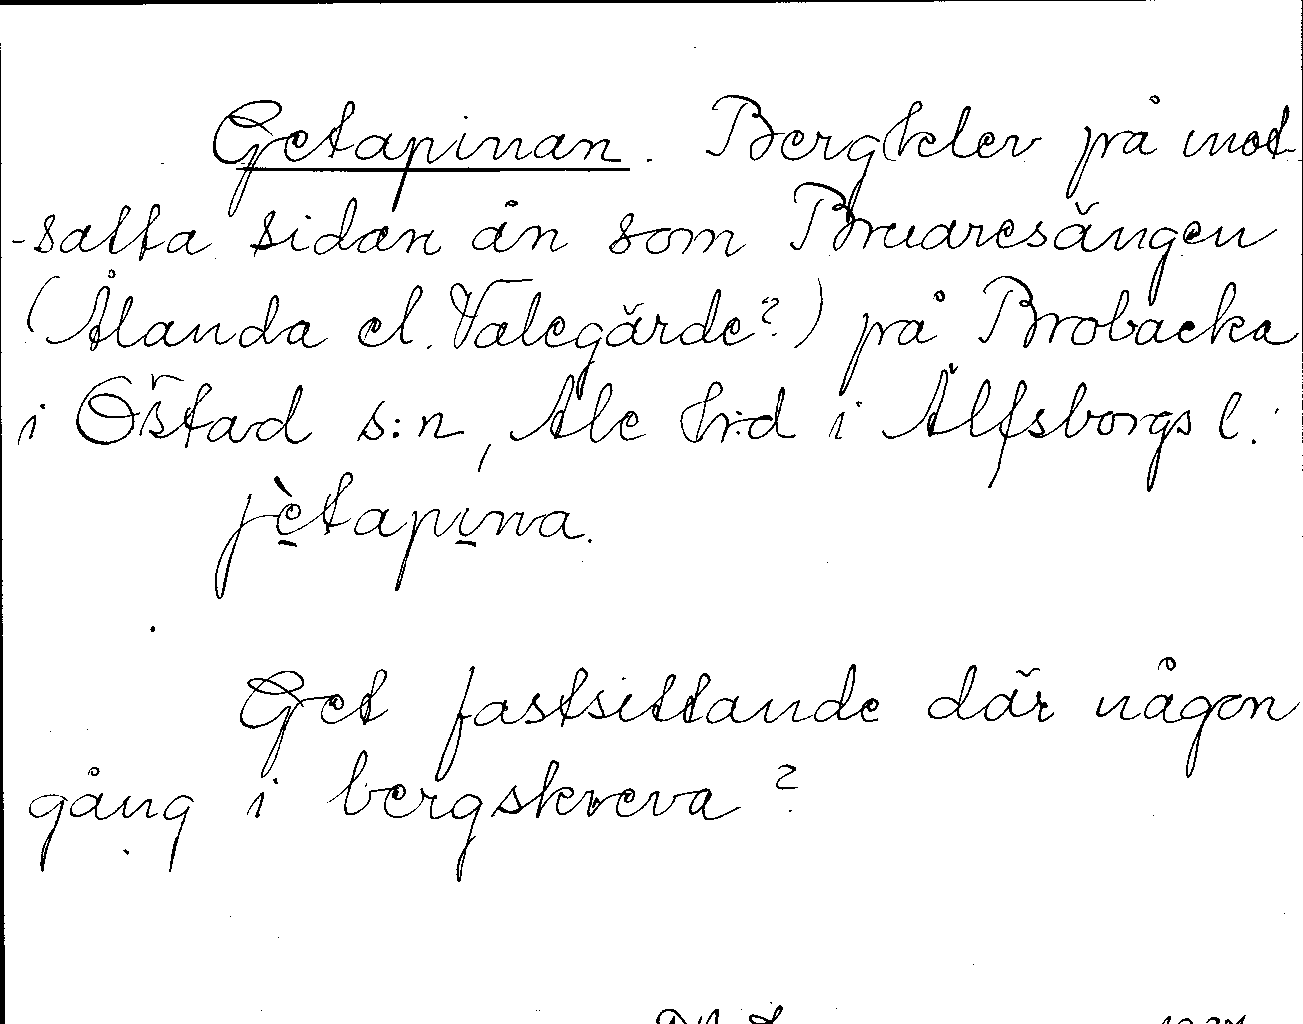 Getapinan. Bergklev på mot-
-satta sidan ån som Bruaresängen
(Ålanda el. Valegärde?) på Brobacka
i Östad s:n, Ale hrd i Älfsborgs l.
jètapina.
Get fastsittande där någon
gång i bergskreva?